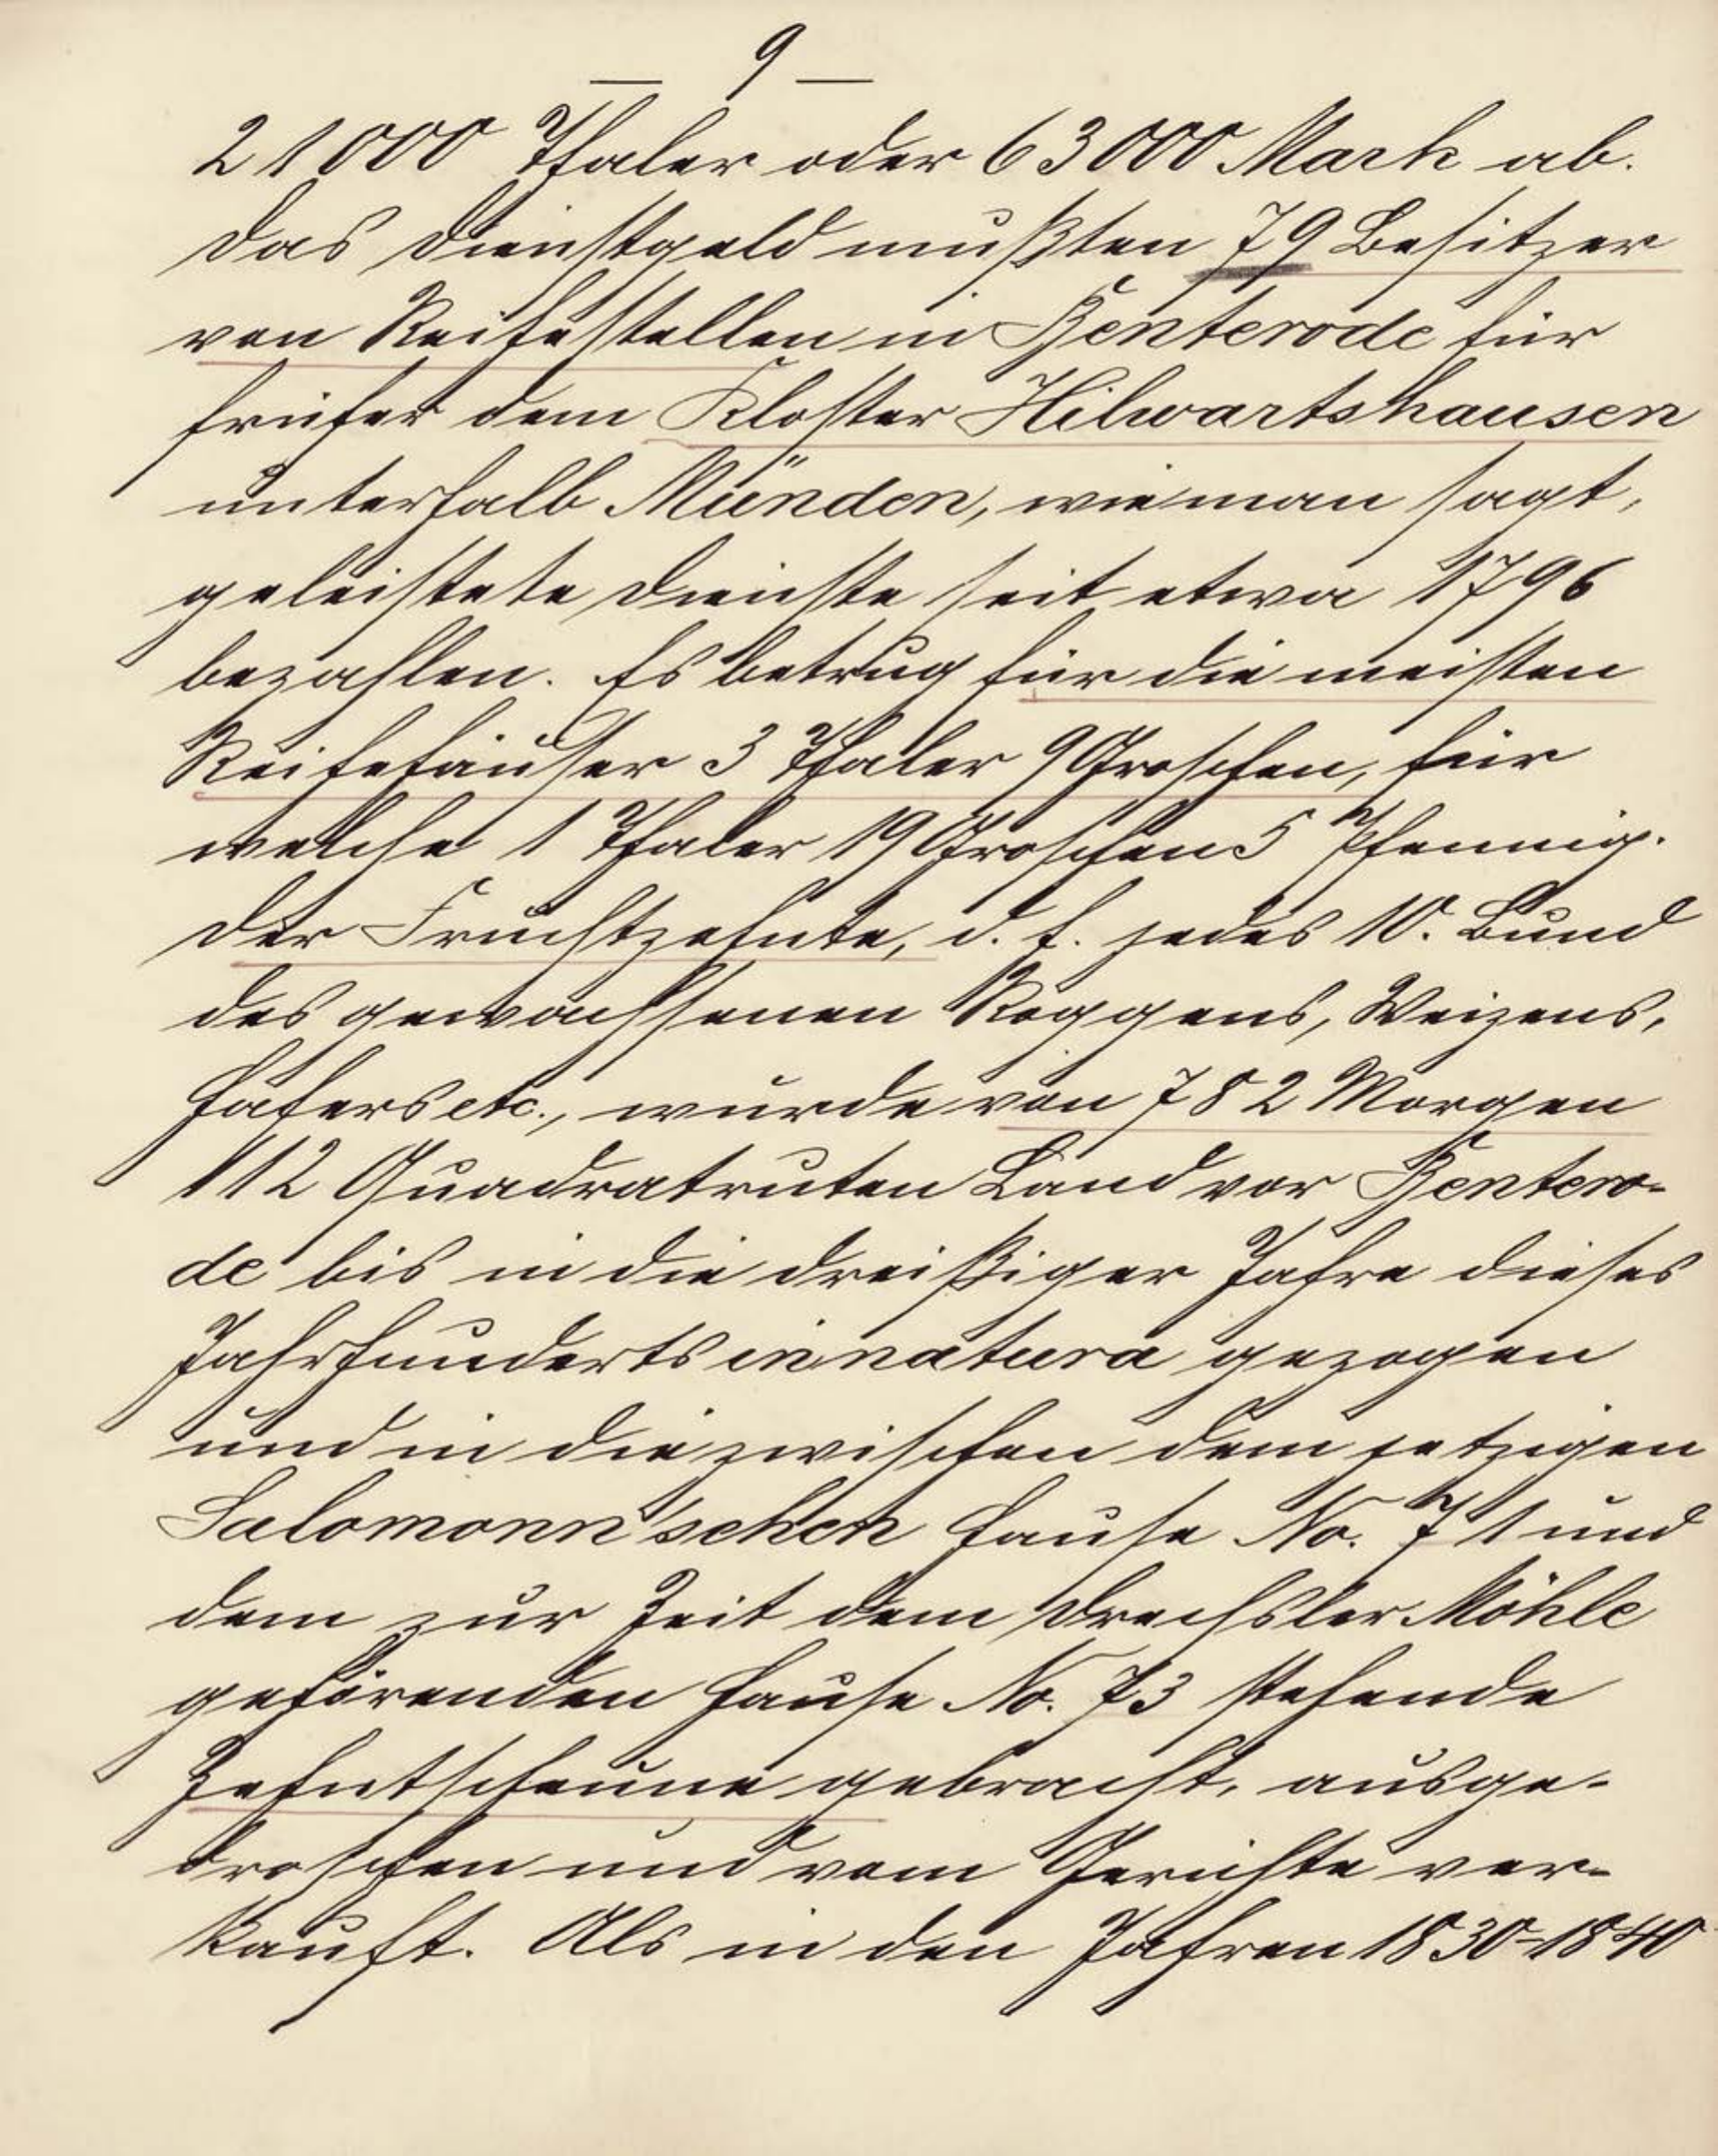 — 9 —
21000 Thaler oder 63000 Mark ab.
Das Dienstgeld mußten 79 Besitzer
von Reihestellen in Benterode für
früher dem Kloster Hilwartshausen
unterhalb Münden, wie man sagt,
geleistete Dienste seit etwa 1796
bezahlen. Es betrug für die meisten
Reihehäuser 3 Thaler 9 Groschen, für
welche 1 Thaler 19 Groschen 5 Pfennig.
Der Fruchtzehnte, d. h. jedes 10. Bund
des gewachsenen Roggens, Weizens,
Hafers etc., wurde von 782 Morgen
112 Quadratruten Land vor Bentero-
de bis in die dreißiger Jahre dieses
Jahrhunderts in natura gezogen
und in die zwischen dem jetzigen
Salomonn'schen Hause No. 71 und
dem zur Zeit dem Drechsler Möhle
gehörenden Hause No. 73 stehende
Zehntscheune gebracht, ausge-
droschen und vom Gerichte ver-
kauft. Als in den Jahren 1830-1840